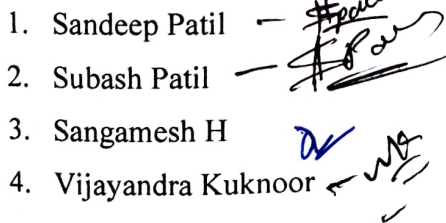 1. Sandeep Patil -
2. Subash Patil -
3. Sangamesh H
4. Vijayandra Kuknoor -